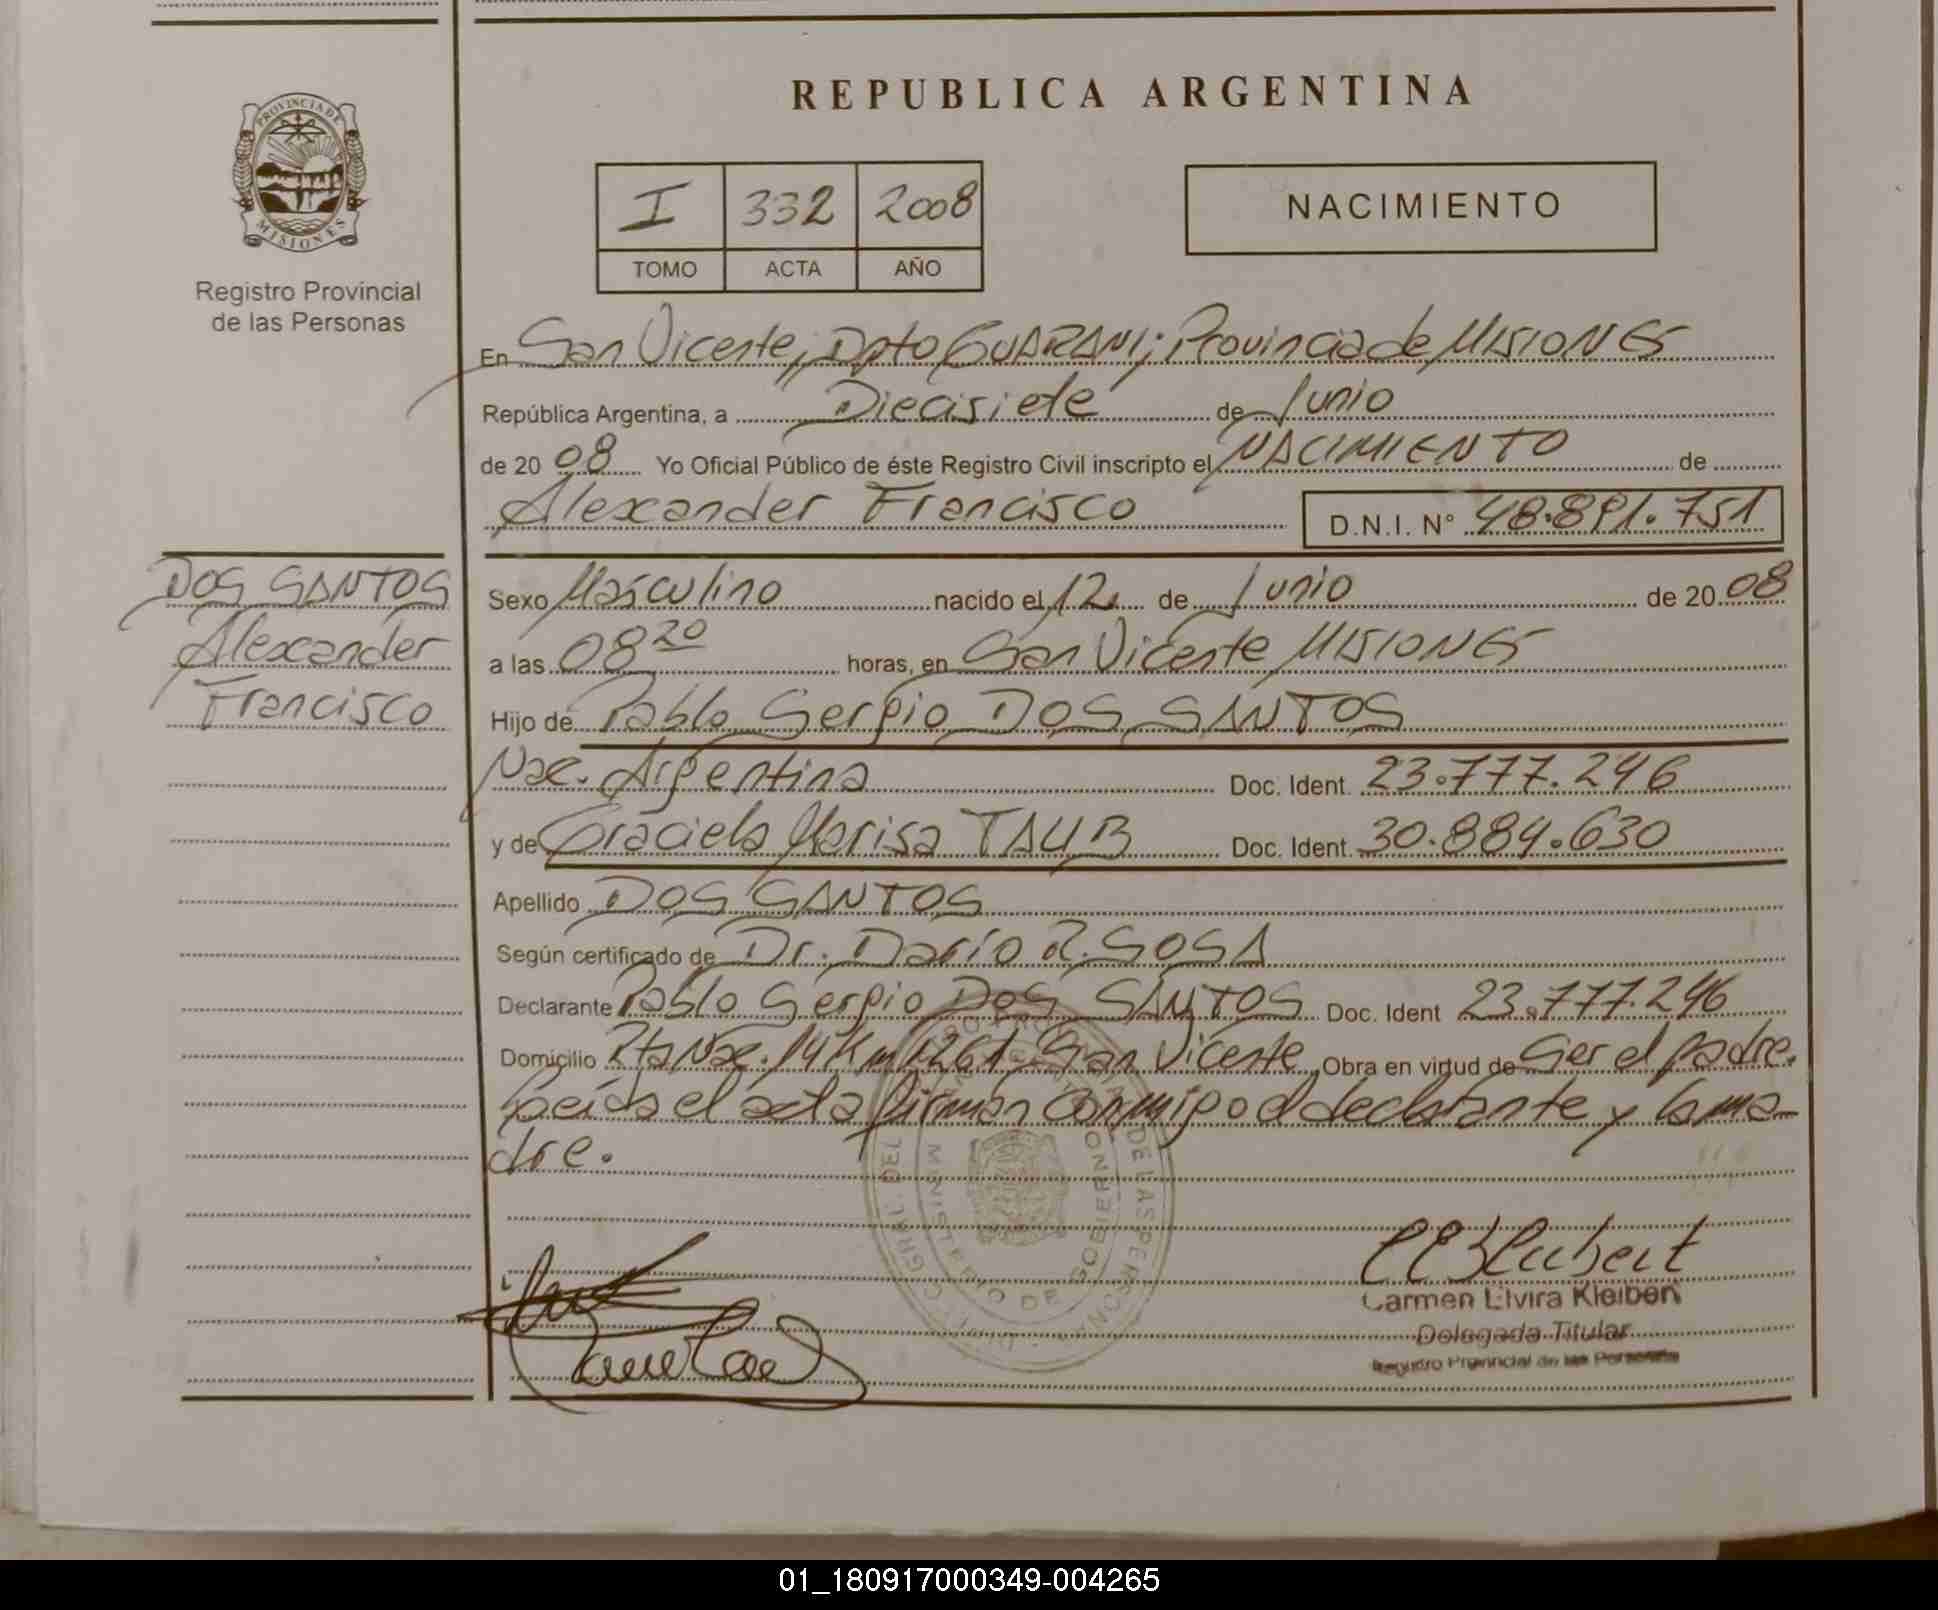 REPUBLICA ARGENTINA
PROVINCIA DE
MISIONES
Registro Provincial
de las Personas
I 332 2008
TOMO ACTA AÑO
NACIMIENTO
En San Vicente, Dpto GUARANI; Provincia de MISIONES
República Argentina, a Diecisiete de Junio
de 20 08 Yo Oficial Público de éste Registro Civil inscripto el NACIMIENTO de
Alexander Francisco D.N.I. N° 48.891.751
DOS SANTOS
Alexander
Francisco
Sexo Masculino nacido el 12 de Junio de 20 08
a las 08 20 horas, en San Vicente MISIONES
Hijo de Pablo Sergio DOS SANTOS
Nac. Argentina Doc. Ident. 23.777.246
y de Graciela Marisa TAUB Doc. Ident. 30.884.630
Apellido DOS SANTOS
Según certificado de Dr. Darío R. SOSA
Declarante Pablo Sergio DOS SANTOS Doc. Ident 23.777.246
Domicilio Rta Nac. 14 Km 1261 San Vicente Obra en virtud de Ser el padre.
Leída el acta firman conmigo el declarante y la ma-
dre.
DE LAS PERSONAS
MINISTERIO DE GOBIERNO
Carmen Elvira Kleiben
Delegada Titular
Registro Provincial de las Personas
01_180917000349-004265